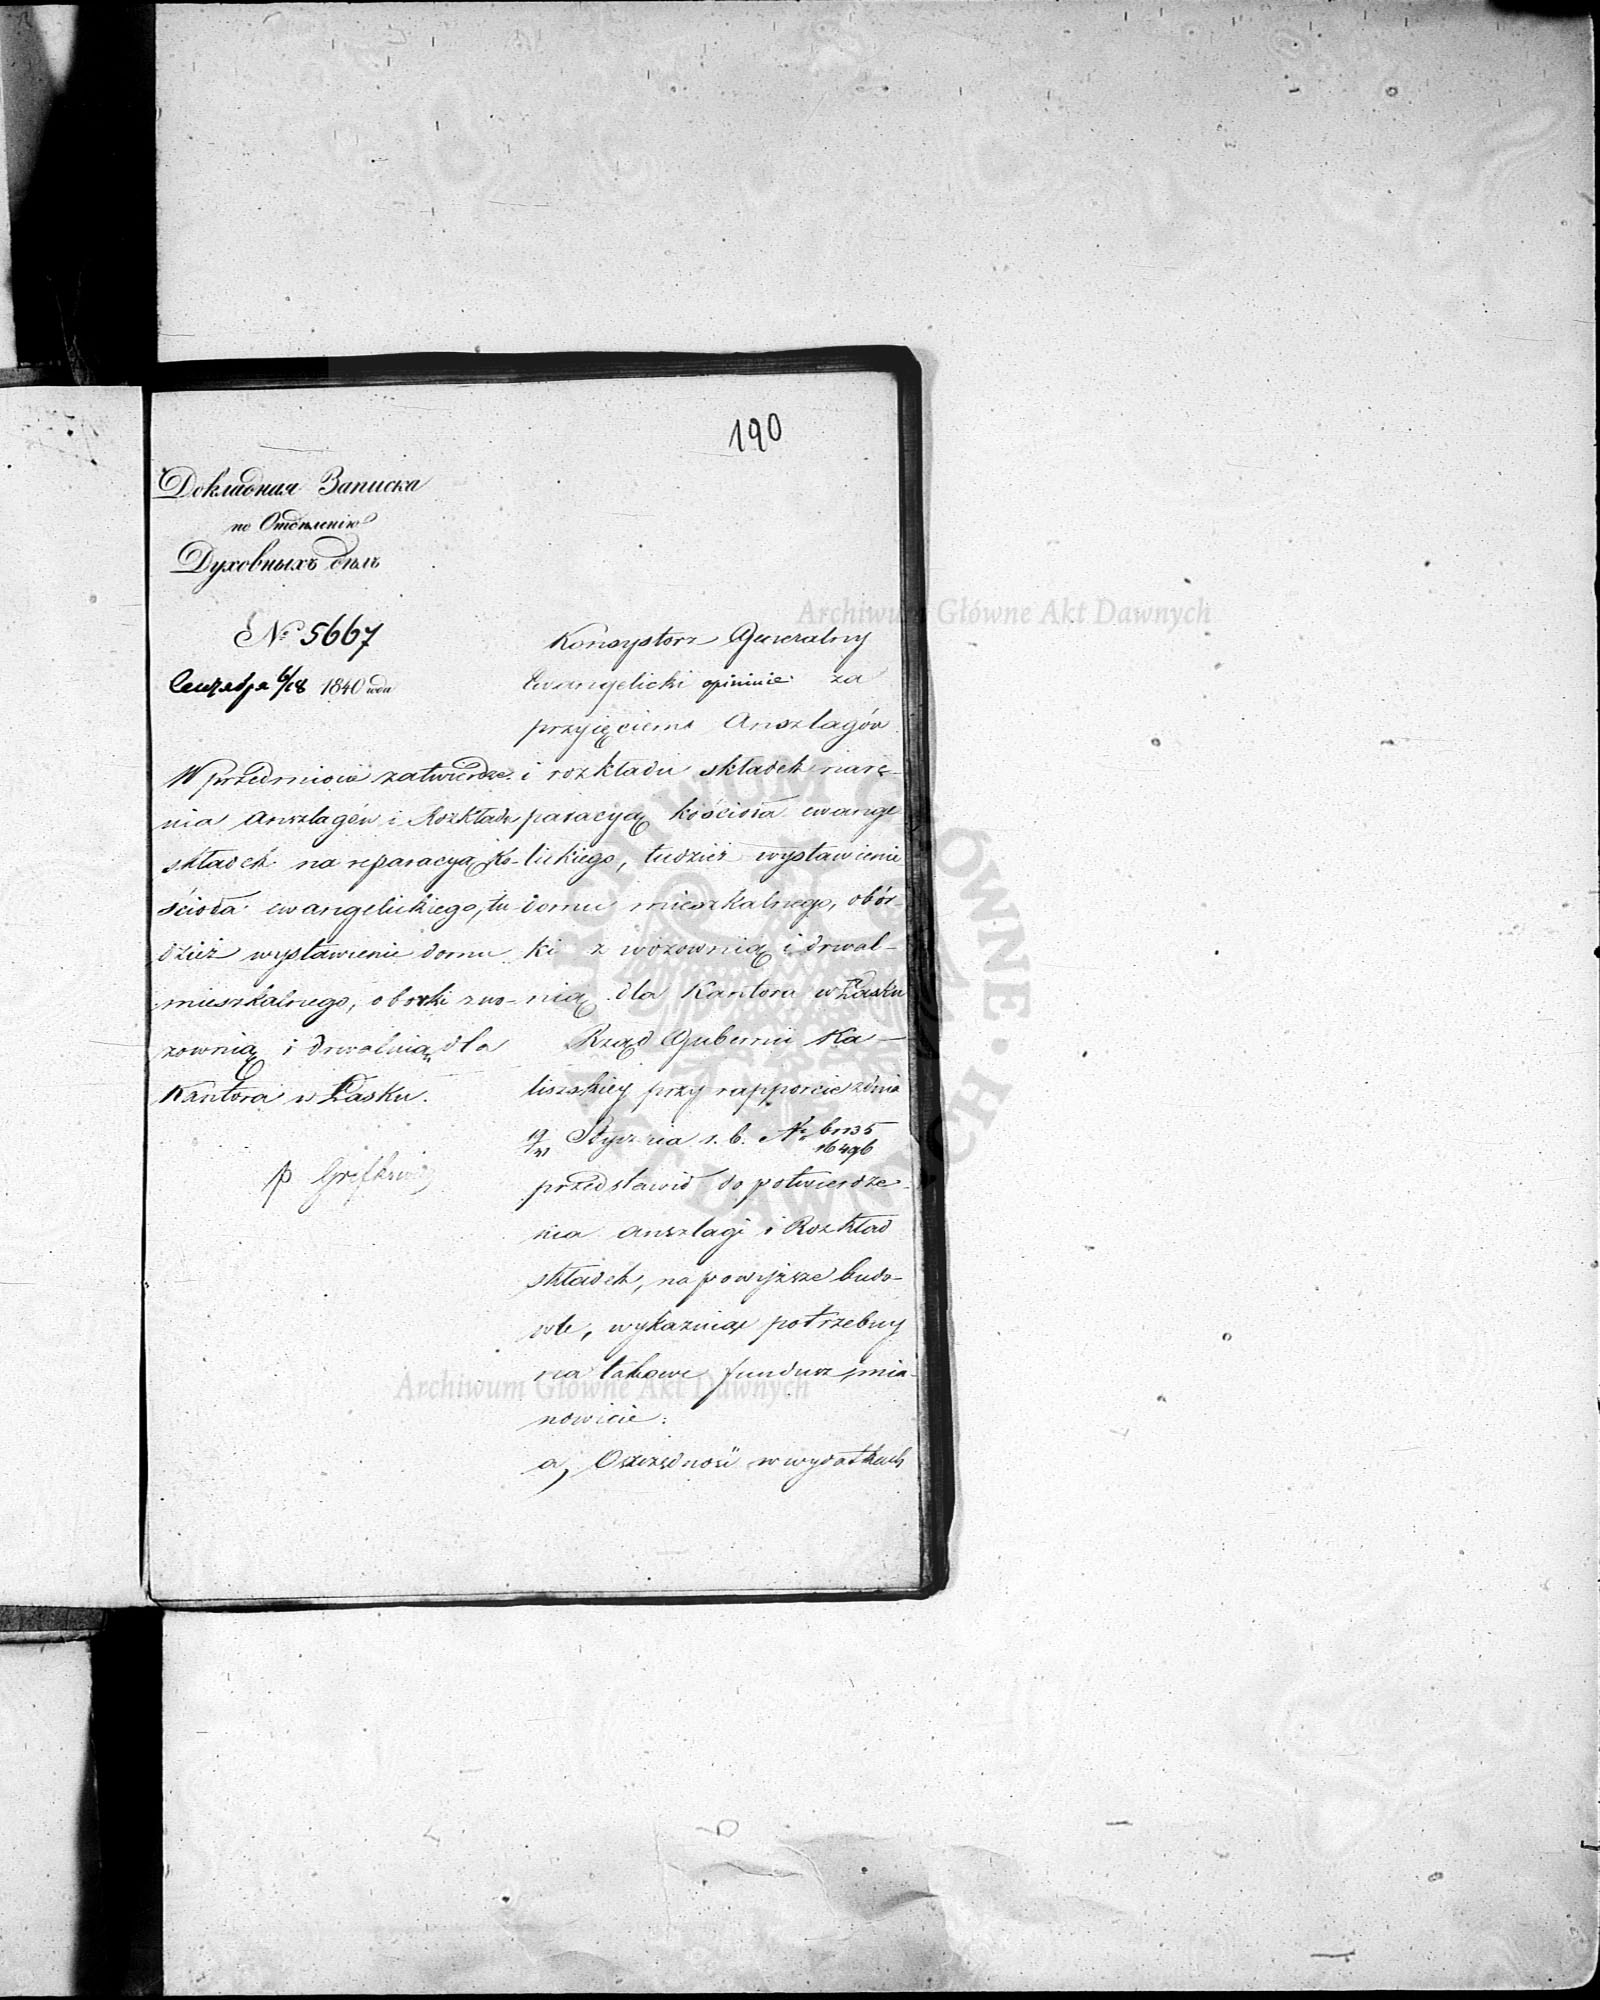 190
Докладная Записка
по Отдѣленію
Духовныхъ дѣлъ
№ 5667
Сентября 6/18 1840 года
W przedmiocie zatwierdze-
nia Anszlagów i Rozkładu
składek na reparacyą Ko-
ścioła ewangelickiego, tu-
dzież wystawienie domu
mieszkalnego, oborki z wo-
zownią i drwalnią dla
Kantora w Łasku.
Konsystorz Generalny
Ewangelicki opiniuie za
przyjęciem Anszlagów
i rozkładu składek na re-
paracyą kościoła ewange
lickiego, tudzież wystawienie
domu mieszkalnego, obór-
ki z wozownią i drwal-
nią dla Kantora w Łasku
Rząd Gubernii Ka-
liszskiey przy rapporcie z dnia
19/31 Stycznia r. b. №
16496
przedstawił do potwierdze-
nia anszlagi i Rozkład
składek, na powyższe budo-
wle, wykazuiąc potrzebny
na takowe fundusz, mia-
nowicie:
a, Oszczędność w wydatkach
Archiwum Główne Akt Dawnych
Archiwum Główne Akt Dawnych
ARCHIWUM GŁÓWNE AKT DAWNYCH